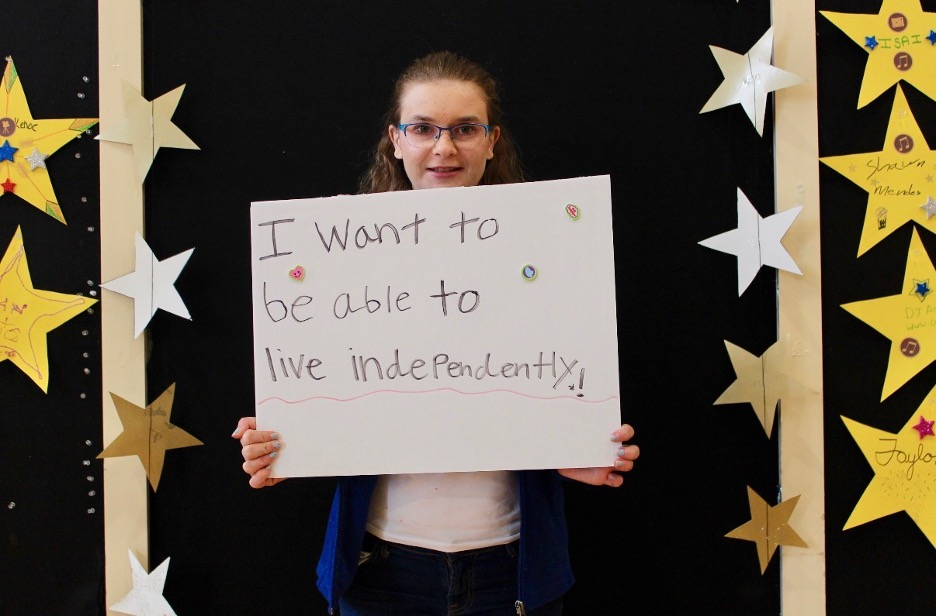 I want to
be able to
live independently!
ISAI
Shawn
Mendes
Taylo